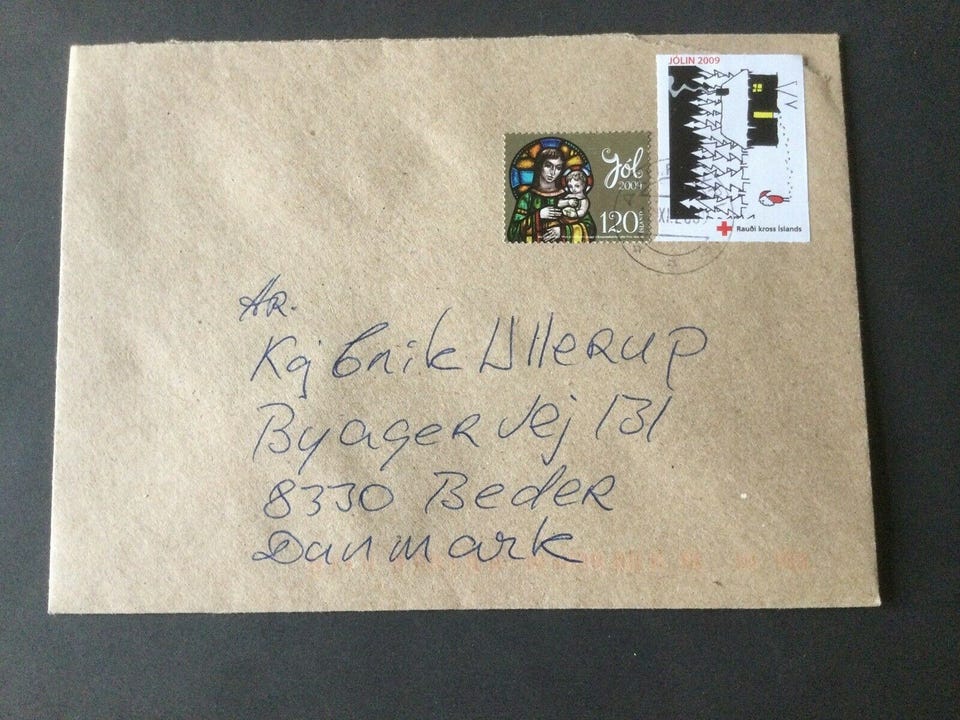 JÓLIN 2009
Jól
2009
120
ÍSLAND
Rauði kross Íslands
AR.
Kaj Erik Ullerup
Byagervej 131
8330 Beder
Danmark